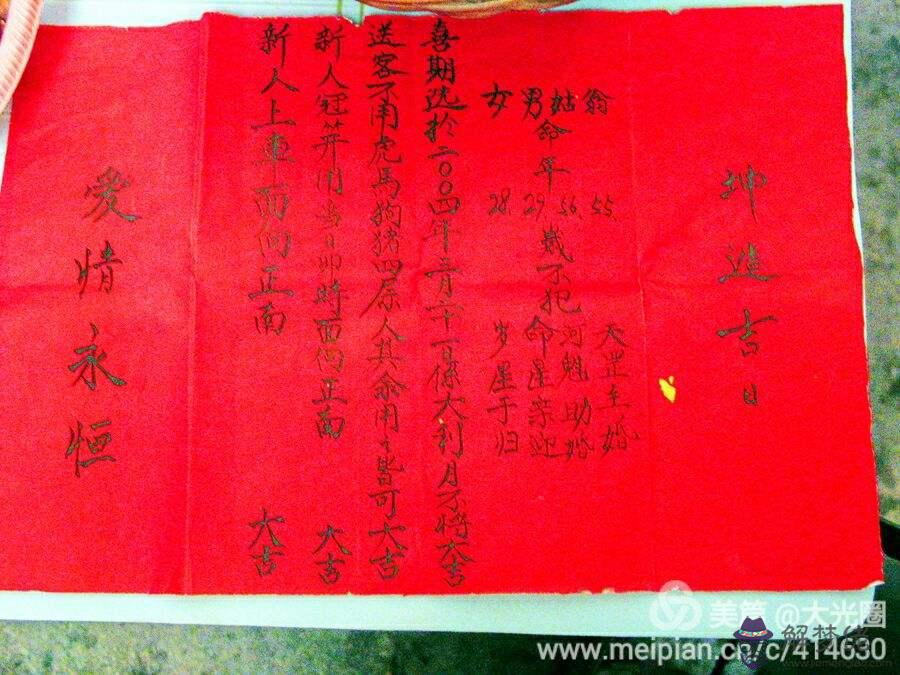 坤造吉日
翁 55. 天罡主婚
姑 56. 河魁助婚
男命年 29. 岁不犯 命星亲迎
女 28. 岁星于归
喜期选於二00四年三月二十一日係大利月不将大吉
送客不用虎馬狗猪四属人其余用之皆可大吉
新人冠笄用当日卯時面向正南 大吉
新人上車面向正南 大吉
爱情永恒
美篇 @大光圈
www.meipian.cn/c/414630
解梦佬